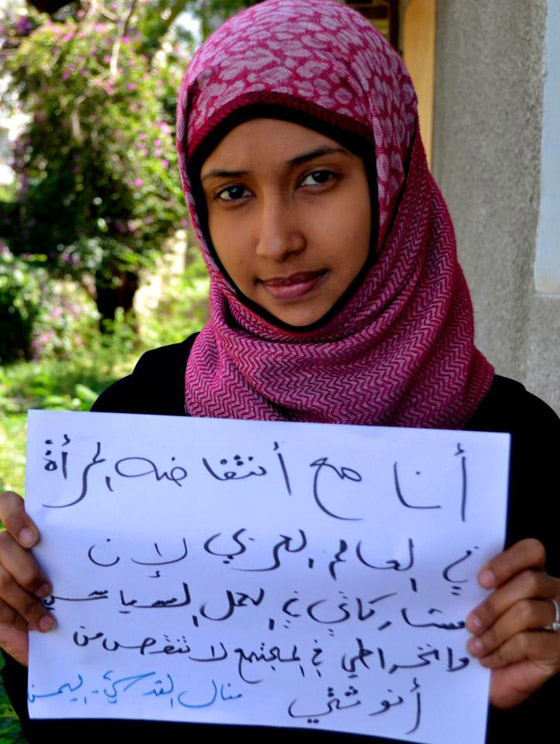 أنا مع أنتفاضه المرأة
في العالم العربي لان
مشاركاتي في العمل السياسي
وانخراطي في المجتمع لا تنقص من
أنوثتي
منال القدسي - اليمن